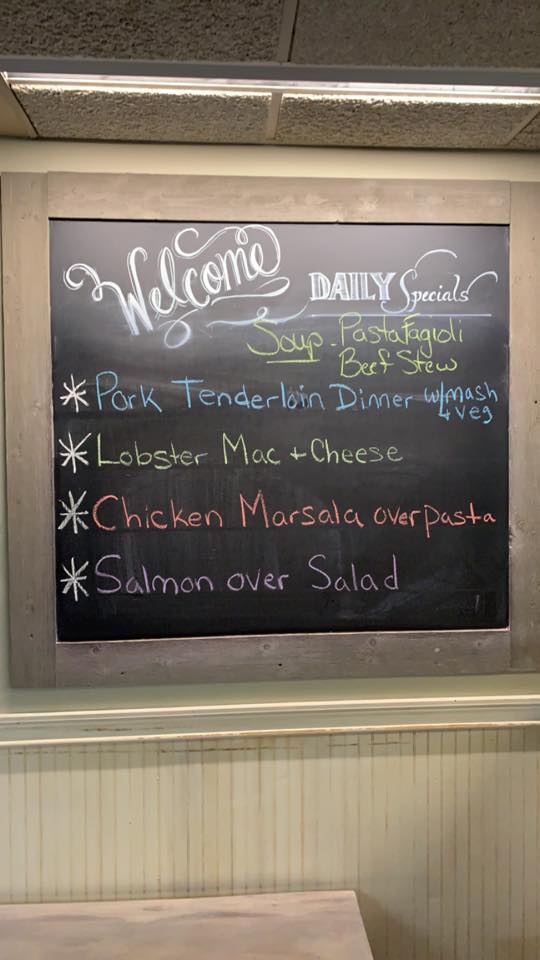 Welcome
DAILY Specials
Soup - Pasta Fagioli
Beef Stew
* Pork Tenderloin Dinner w/mash
+ veg
* Lobster Mac + Cheese
* Chicken Marsala over pasta
* Salmon over Salad